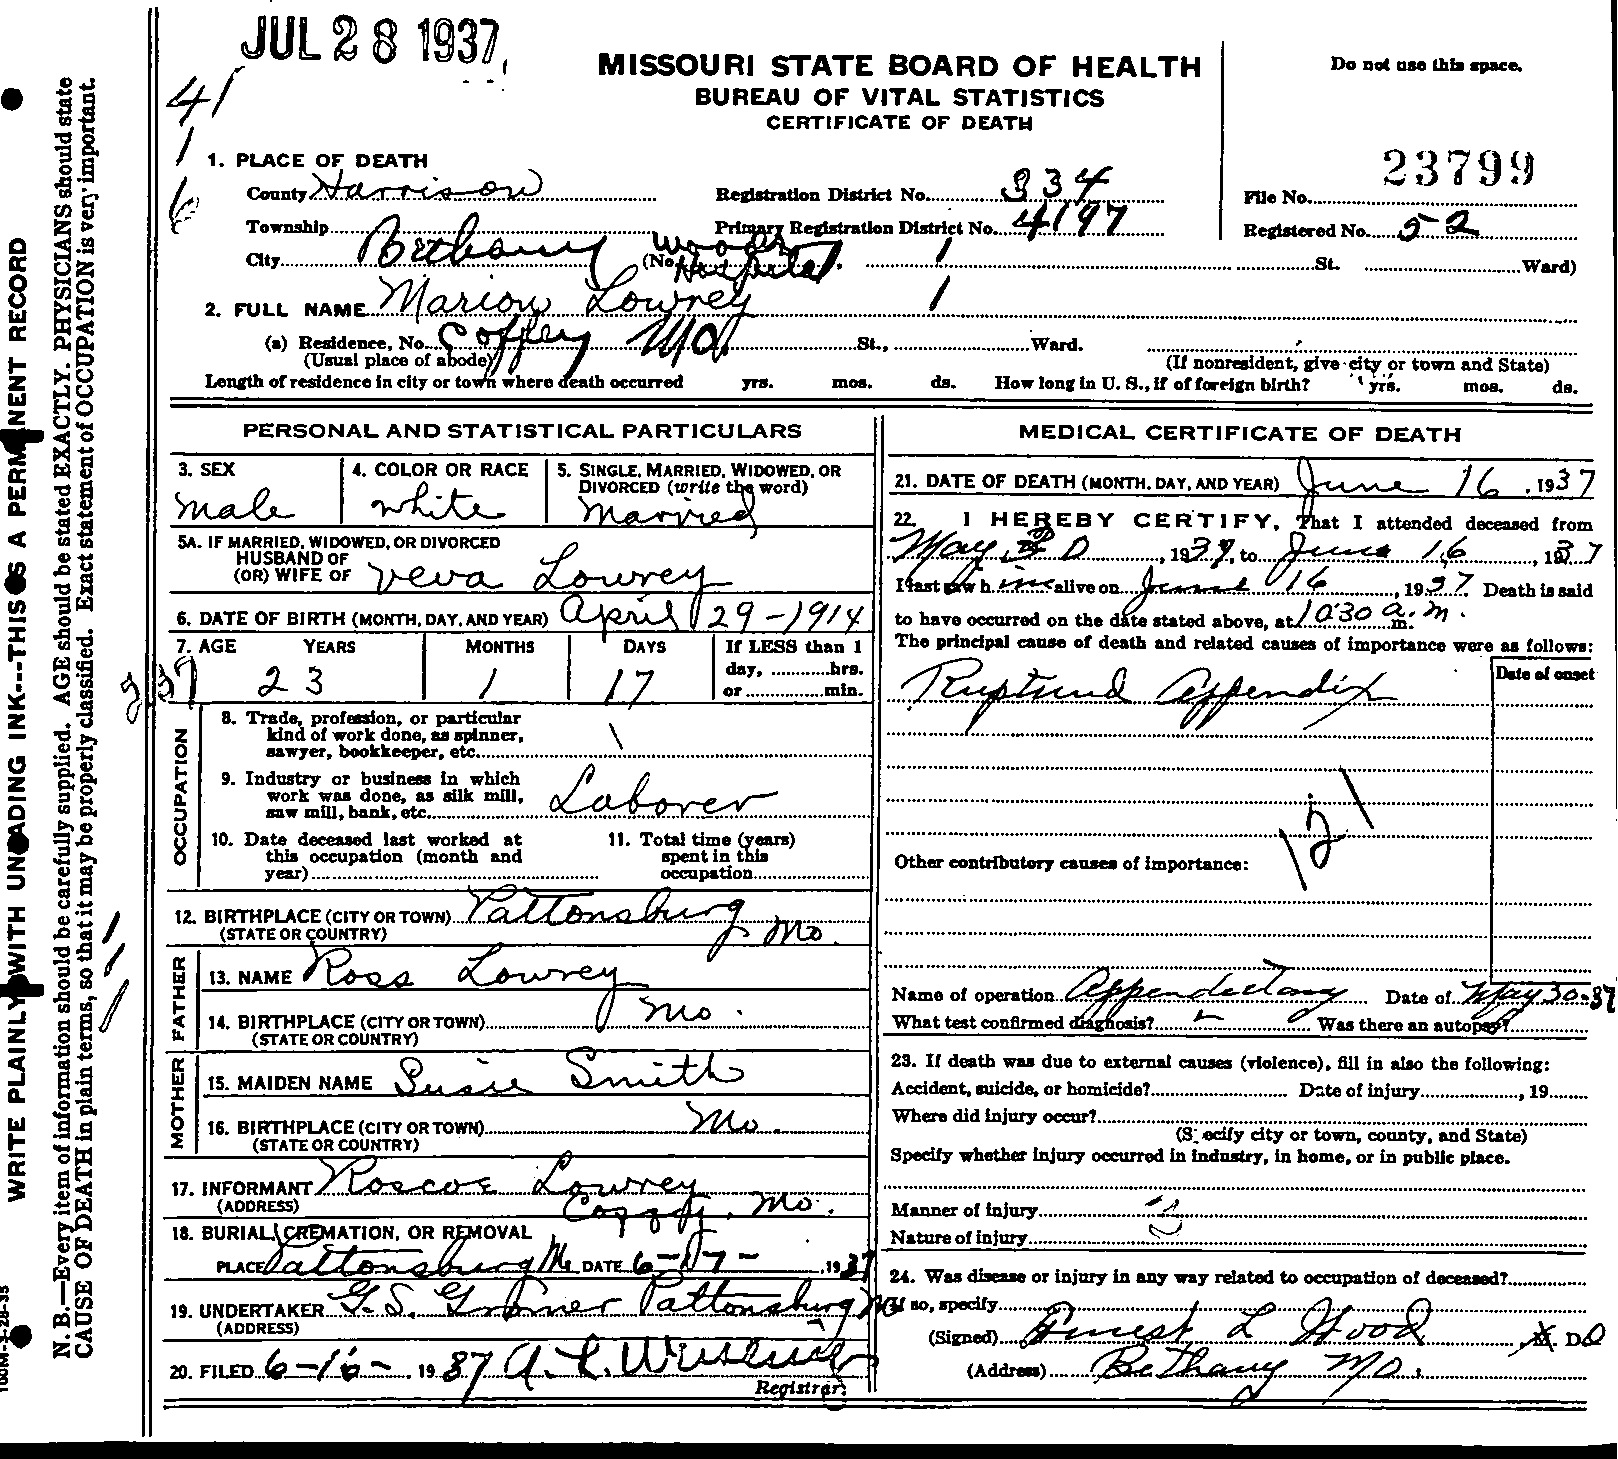 JUL 28 1937
MISSOURI STATE BOARD OF HEALTH
BUREAU OF VITAL STATISTICS
CERTIFICATE OF DEATH
Do not use this space.
41
1
6
1. PLACE OF DEATH
County Harrison Registration District No. 334 File No. 23799
Township Primary Registration District No. 4197 Registered No. 52
City Bethany (No. Woods Hospital. 1 St. Ward)
2. FULL NAME Marion Lowrey 1
(a) Residence, No. Coffey Mo. St., Ward.
(Usual place of abode) (If nonresident, give city or town and State)
Length of residence in city or town where death occurred yrs. mos. ds. How long in U. S., if of foreign birth? yrs. mos. ds.
PERSONAL AND STATISTICAL PARTICULARS
3. SEX 4. COLOR OR RACE 5. SINGLE, MARRIED, WIDOWED, OR
DIVORCED (write the word)
male white Married
5A. IF MARRIED, WIDOWED, OR DIVORCED
HUSBAND OF
(OR) WIFE OF Veva Lowrey
6. DATE OF BIRTH (MONTH, DAY, AND YEAR) April 29-1914
7. AGE YEARS MONTHS DAYS If LESS than 1
day, hrs.
or min.
23 1 17
OCCUPATION
8. Trade, profession, or particular
kind of work done, as spinner,
sawyer, bookkeeper, etc.
9. Industry or business in which
work was done, as silk mill,
saw mill, bank, etc. Laborer
10. Date deceased last worked at
this occupation (month and
year)
11. Total time (years)
spent in this
occupation
12. BIRTHPLACE (CITY OR TOWN) Pattonsburg
(STATE OR COUNTRY) Mo.
FATHER
13. NAME Ross Lowrey
14. BIRTHPLACE (CITY OR TOWN) Mo.
(STATE OR COUNTRY)
MOTHER
15. MAIDEN NAME Susie Smith
16. BIRTHPLACE (CITY OR TOWN) Mo.
(STATE OR COUNTRY)
17. INFORMANT Roscoe Lowrey
(ADDRESS) Coffey, Mo.
18. BURIAL, CREMATION, OR REMOVAL
PLACE Pattonsburg Mo DATE 6-17- , 1937
19. UNDERTAKER G. S. Gromer Pattonsburg Mo
(ADDRESS)
20. FILED 6-16- , 1937 A. L.
Registrar.
MEDICAL CERTIFICATE OF DEATH
21. DATE OF DEATH (MONTH, DAY, AND YEAR) June 16 , 1937
22. I HEREBY CERTIFY, That I attended deceased from
May 30 , 1937, to June 16 , 1937
I last saw h im alive on June 16 , 1937 Death is said
to have occurred on the date stated above, at 1030 a.m. m.
The principal cause of death and related causes of importance were as follows:
Date of onset
Ruptured Appendix
121
Other contributory causes of importance:
Name of operation Appendectomy Date of May 30-37
What test confirmed diagnosis? Was there an autopsy?
23. If death was due to external causes (violence), fill in also the following:
Accident, suicide, or homicide? Date of injury , 19
Where did injury occur?
(Specify city or town, county, and State)
Specify whether injury occurred in industry, in home, or in public place.
Manner of injury
Nature of injury
24. Was disease or injury in any way related to occupation of deceased?
If so, specify
(Signed) Ernest L Wood M. D O
(Address) Bethany Mo.
WRITE PLAINLY, WITH UNFADING INK---THIS IS A PERMANENT RECORD
N. B.—Every item of information should be carefully supplied. AGE should be stated EXACTLY. PHYSICIANS should state
CAUSE OF DEATH in plain terms, so that it may be properly classified. Exact statement of OCCUPATION is very important.
100M-3-28-35